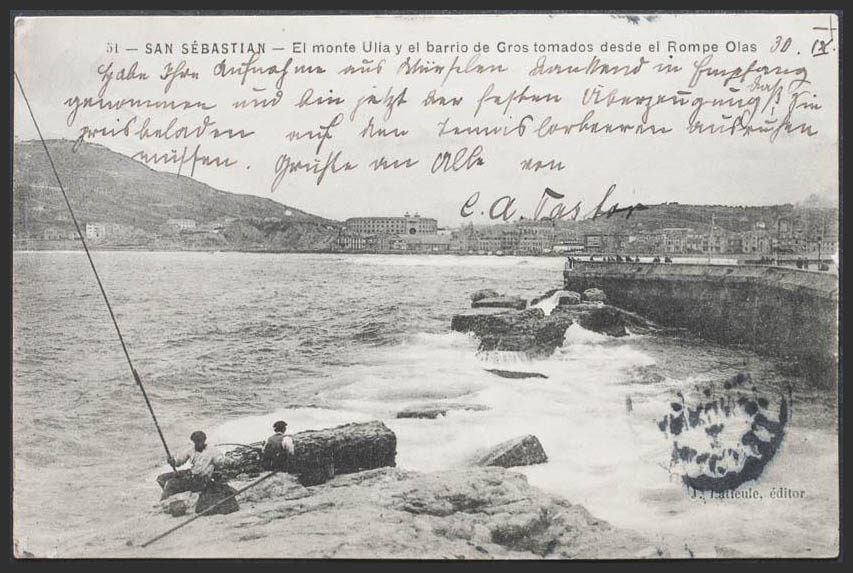 51 — SAN SÉBASTIAN — El monte Ulia y el barrio de Gros tomados desde el Rompe Olas
30. IX.
Habe Ihre Aufnahme aus Würselen dankend in Empfang
genommen und bin jetzt der festen Überzeugung daß Sie
preisbeladen auf den Tennislorbeeren ausruhen
müssen. Grüße an Alle von
C. A. Pastor
J. Latieule, éditor